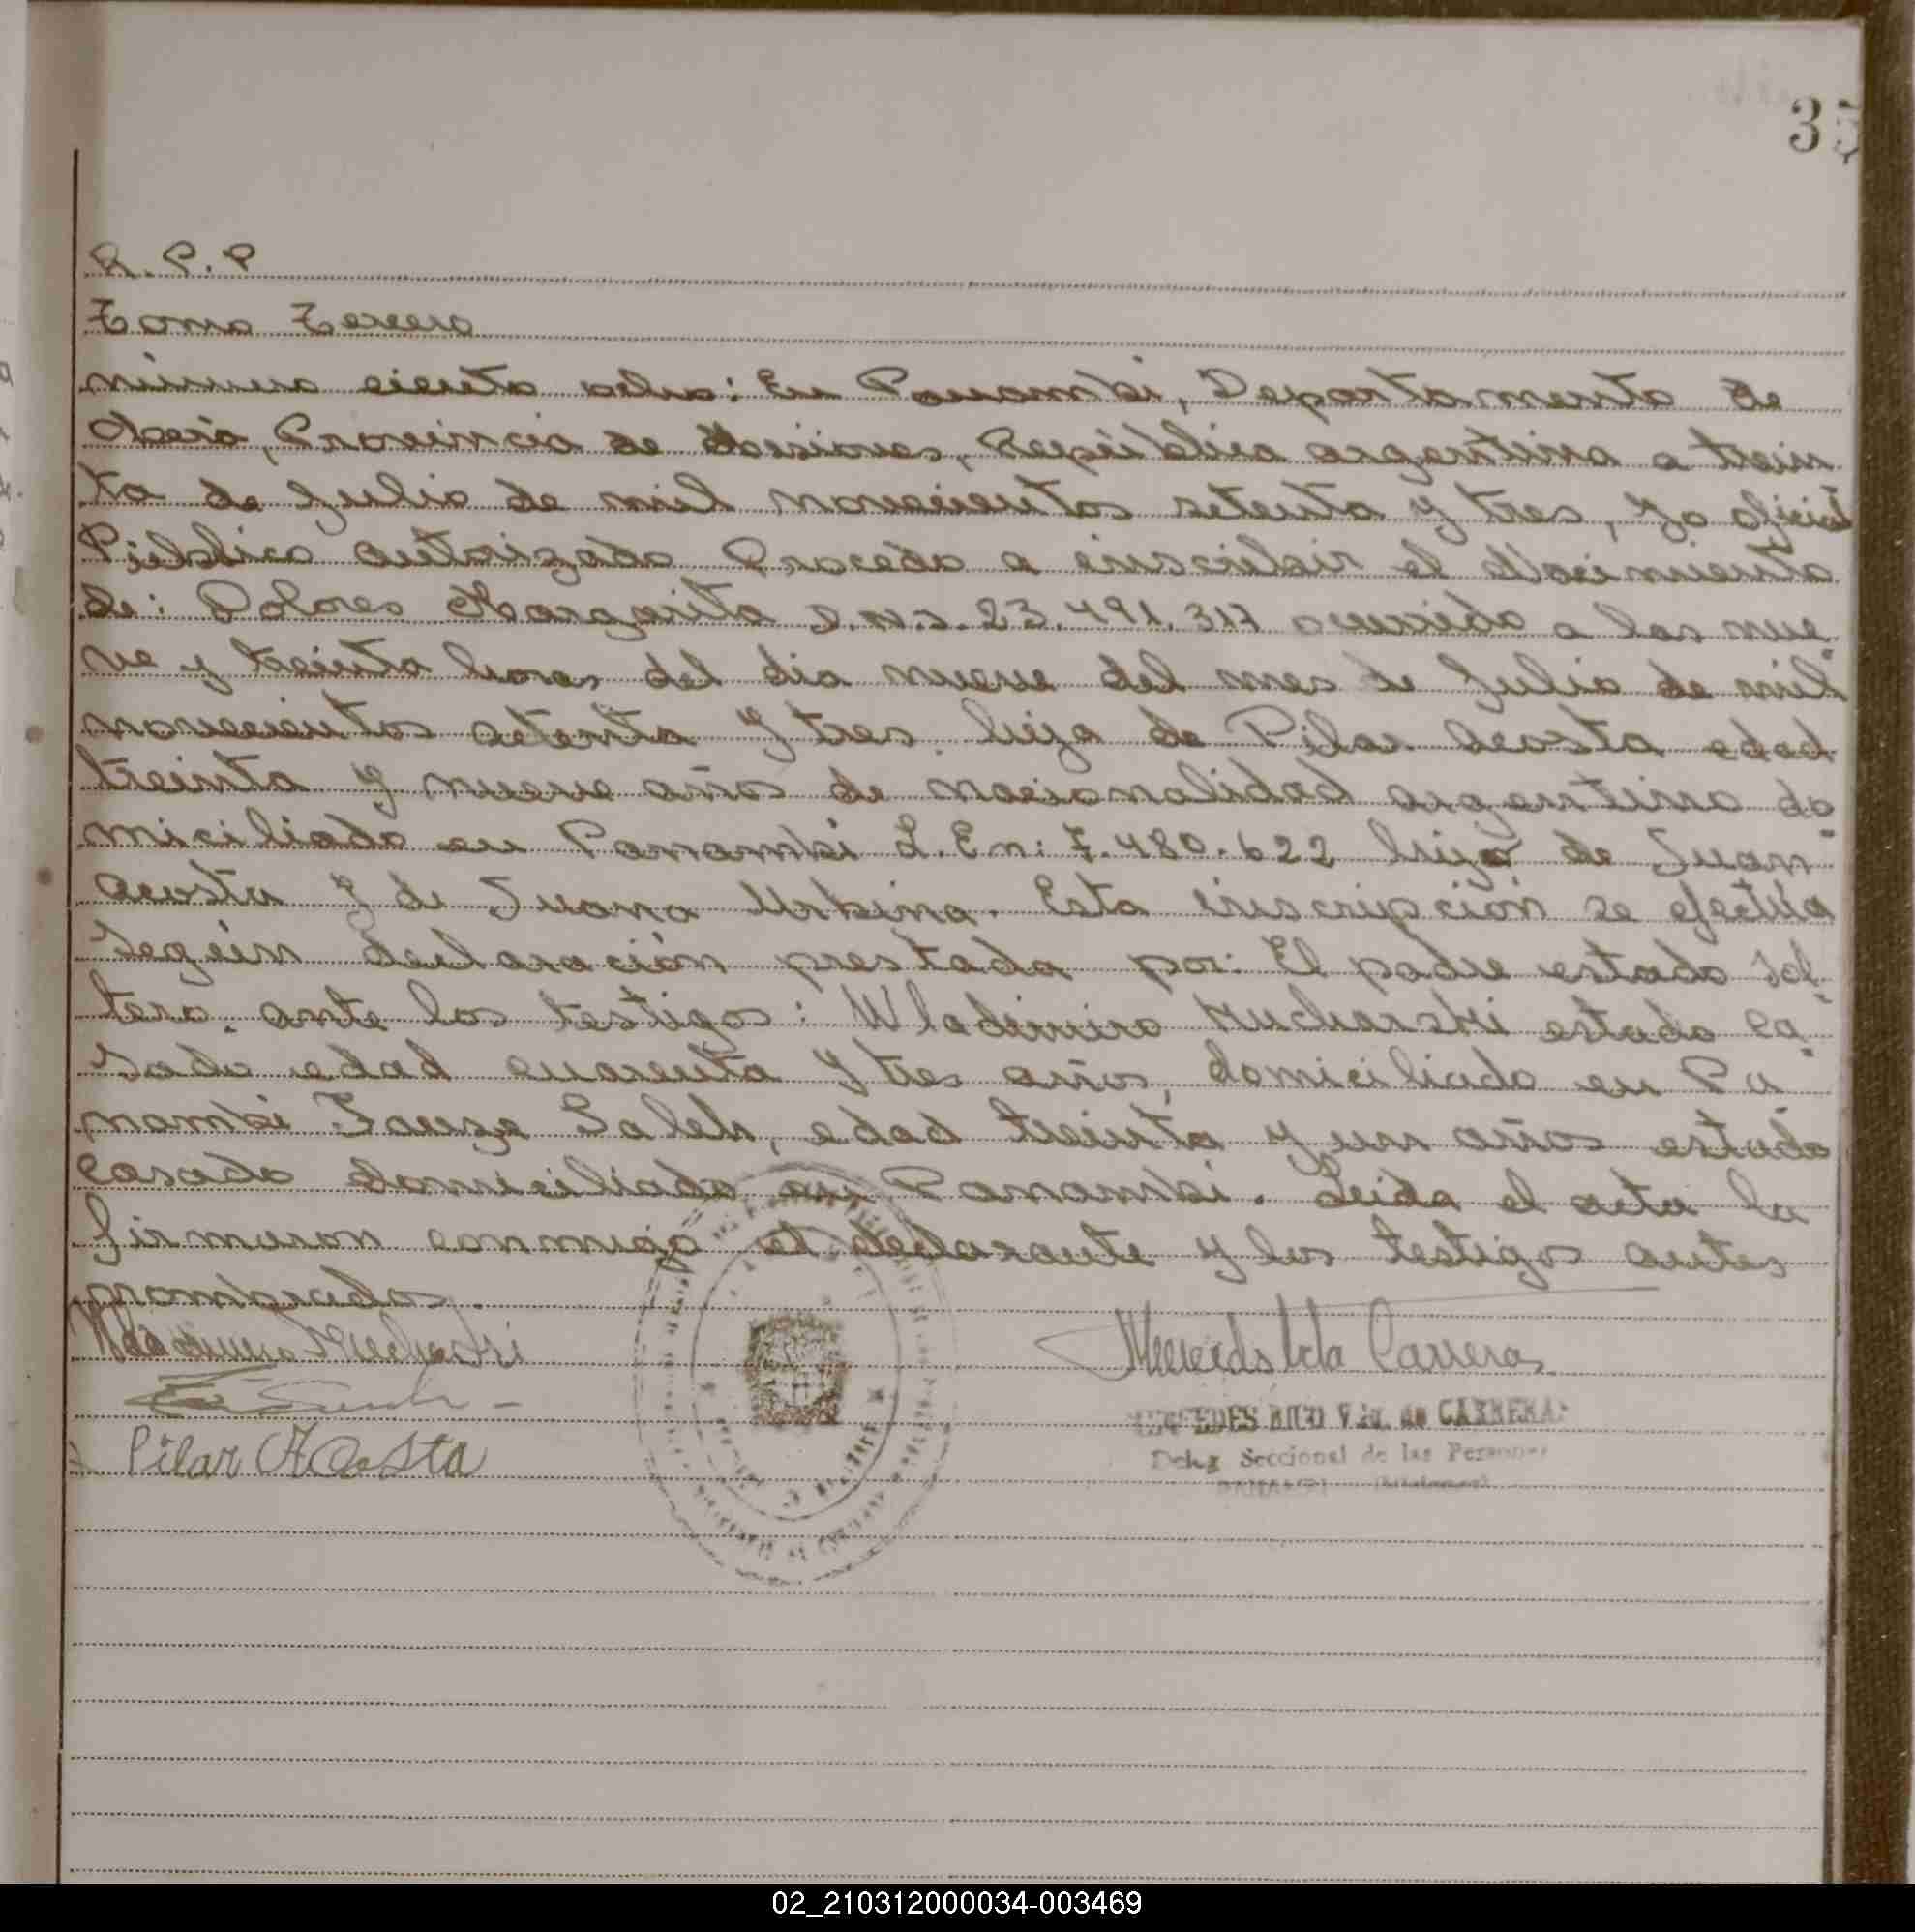 35
R.P.P
Tomo Tercero
número ciento ocho: En Panambí, Departamento de
Oberá, Provincia de Misiones, República argentina a trein
ta de Julio de mil novecientos setenta y tres, Yo oficial
Público autorizado Procedo a inscribir el Nacimiento
de: Dolores Margarita D.N.I. 23.491.317 ocurrido a las nue
ve y treinta horas del dia nueve del mes de Julio de mil
novecientos setenta y tres. hija de Pilar Acosta edad
treinta y nueve años de nacionalidad argentino do
miciliado en Panambí L.E n: 7.480.622 hijo de Juan
acosta y de Juana Urbina. Esta inscripción se efectúa
según declaración prestada por: El padre estado sol
tero. ante los testigos: Wladimiro Kucharski estado ca
sado edad cuarenta y tres años, domiciliado en Pa
nambí Fauze Saleh, edad treinta y un años estado
casado domiciliado en Panambí. Leida el acta la
firmaron conmigo el declarante y los testigos antes
nombrados.
Wladimiro Kucharski
Pilar Acosta
MERCEDES Vda. de CARRERAS
Deleg Seccional de las Personas
PANAMBI (Misiones)
02_210312000034-003469